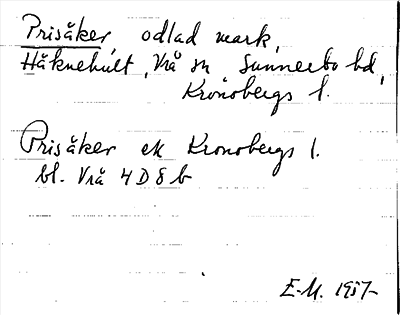 Prisåker odlad mark,
Håknehult, Vrå sn Sunnerbo hd,
Kronobergs l.
Prisåker ek Kronobergs l.
bl. Vrå 4D8b
E.M. 1957